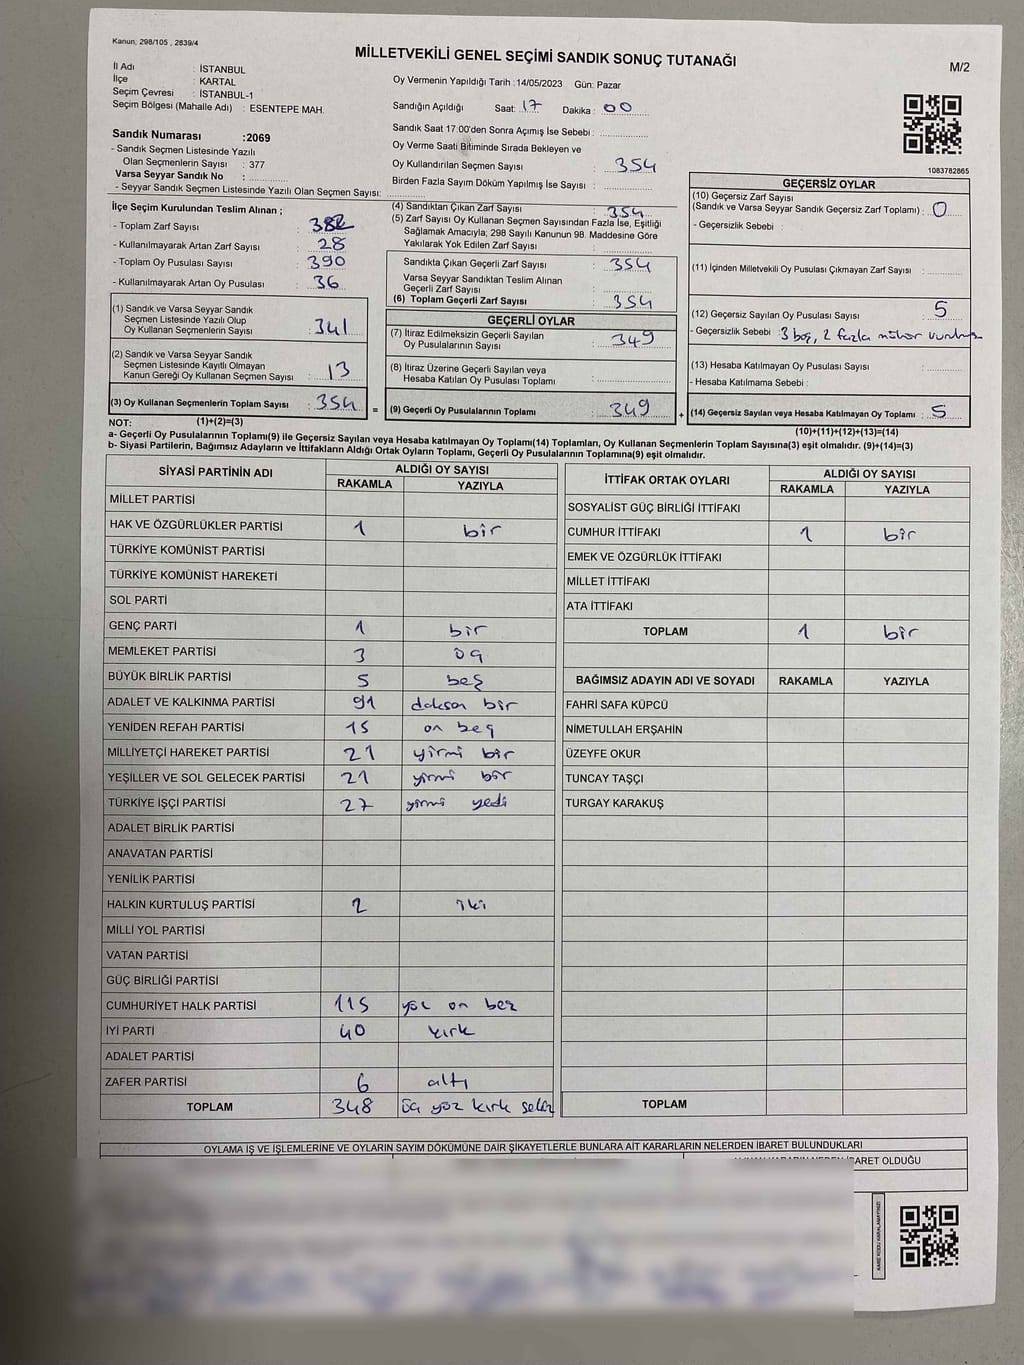 Kanun, 298/105 , 2839/4
MİLLETVEKİLİ GENEL SEÇİMİ SANDIK SONUÇ TUTANAĞI
M/2
İl Adı : İSTANBUL
İlçe : KARTAL
Seçim Çevresi : İSTANBUL-1
Seçim Bölgesi (Mahalle Adı) : ESENTEPE MAH.
Oy Vermenin Yapıldığı Tarih :14/05/2023 Gün: Pazar
Sandığın Açıldığı Saat: 17 Dakika : 00
Sandık Saat 17:00'den Sonra Açımış İse Sebebi :
Oy Verme Saati Bitiminde Sırada Bekleyen ve
Oy Kullandırılan Seçmen Sayısı : 354
Birden Fazla Sayım Döküm Yapılmış İse Sayısı :
Sandık Numarası :2069
- Sandık Seçmen Listesinde Yazılı
Olan Seçmenlerin Sayısı : 377
Varsa Seyyar Sandık No :
- Seyyar Sandık Seçmen Listesinde Yazılı Olan Seçmen Sayısı:
1083782865
İlçe Seçim Kurulundan Teslim Alınan ;
- Toplam Zarf Sayısı : 382
- Kullanılmayarak Artan Zarf Sayısı : 28
- Toplam Oy Pusulası Sayısı : 390
- Kullanılmayarak Artan Oy Pusulası : 36
(1) Sandık ve Varsa Seyyar Sandık
Seçmen Listesinde Yazılı Olup
Oy Kullanan Seçmenlerin Sayısı : 341
(2) Sandık ve Varsa Seyyar Sandık
Seçmen Listesinde Kayıtlı Olmayan
Kanun Gereği Oy Kullanan Seçmen Sayısı : 13
(3) Oy Kullanan Seçmenlerin Toplam Sayısı : 354
(4) Sandıktan Çıkan Zarf Sayısı : 354
(5) Zarf Sayısı Oy Kullanan Seçmen Sayısından Fazla İse, Eşitliği
Sağlamak Amacıyla; 298 Sayılı Kanunun 98. Maddesine Göre
Yakılarak Yok Edilen Zarf Sayısı :
Sandıkta Çıkan Geçerli Zarf Sayısı : 354
Varsa Seyyar Sandıktan Teslim Alınan
Geçerli Zarf Sayısı :
(6) Toplam Geçerli Zarf Sayısı : 354
GEÇERLİ OYLAR
(7) İtiraz Edilmeksizin Geçerli Sayılan
Oy Pusulalarının Sayısı : 349
(8) İtiraz Üzerine Geçerli Sayılan veya
Hesaba Katılan Oy Pusulası Toplamı :
= (9) Geçerli Oy Pusulalarının Toplamı : 349 +
GEÇERSİZ OYLAR
(10) Geçersiz Zarf Sayısı
(Sandık ve Varsa Seyyar Sandık Geçersiz Zarf Toplamı) : 0
- Geçersizlik Sebebi :
(11) İçinden Milletvekili Oy Pusulası Çıkmayan Zarf Sayısı :
(12) Geçersiz Sayılan Oy Pusulası Sayısı : 5
- Geçersizlik Sebebi : 3 boş, 2 fazla mühür vurulmuş
(13) Hesaba Katılmayan Oy Pusulası Sayısı :
- Hesaba Katılmama Sebebi :
(14) Geçersiz Sayılan veya Hesaba Katılmayan Oy Toplamı : 5
NOT: (1)+(2)=(3)
(10)+(11)+(12)+(13)=(14)
a- Geçerli Oy Pusulalarının Toplamı(9) ile Geçersiz Sayılan veya Hesaba katılmayan Oy Toplamı(14) Toplamları, Oy Kullanan Seçmenlerin Toplam Sayısına(3) eşit olmalıdır. (9)+(14)=(3)
b- Siyasi Partilerin, Bağımsız Adayların ve İttifakların Aldığı Ortak Oyların Toplamı, Geçerli Oy Pusulalarının Toplamına(9) eşit olmalıdır.
SİYASİ PARTİNİN ADI ALDIĞI OY SAYISI
RAKAMLA YAZIYLA
MİLLET PARTİSİ
HAK VE ÖZGÜRLÜKLER PARTİSİ 1 bir
TÜRKİYE KOMÜNİST PARTİSİ
TÜRKİYE KOMÜNİST HAREKETİ
SOL PARTİ
GENÇ PARTİ 1 bir
MEMLEKET PARTİSİ 3 üç
BÜYÜK BİRLİK PARTİSİ 5 beş
ADALET VE KALKINMA PARTİSİ 91 doksan bir
YENİDEN REFAH PARTİSİ 15 on beş
MİLLİYETÇİ HAREKET PARTİSİ 21 yirmi bir
YEŞİLLER VE SOL GELECEK PARTİSİ 21 yirmi bir
TÜRKİYE İŞÇİ PARTİSİ 27 yirmi yedi
ADALET BİRLİK PARTİSİ
ANAVATAN PARTİSİ
YENİLİK PARTİSİ
HALKIN KURTULUŞ PARTİSİ 2 iki
MİLLİ YOL PARTİSİ
VATAN PARTİSİ
GÜÇ BİRLİĞİ PARTİSİ
CUMHURİYET HALK PARTİSİ 115 yüz on beş
İYİ PARTİ 40 kırk
ADALET PARTİSİ
ZAFER PARTİSİ 6 altı
TOPLAM 348 üç yüz kırk sekiz
İTTİFAK ORTAK OYLARI ALDIĞI OY SAYISI
RAKAMLA YAZIYLA
SOSYALİST GÜÇ BİRLİĞİ İTTİFAKI
CUMHUR İTTİFAKI 1 bir
EMEK VE ÖZGÜRLÜK İTTİFAKI
MİLLET İTTİFAKI
ATA İTTİFAKI
TOPLAM 1 bir
BAĞIMSIZ ADAYIN ADI VE SOYADI RAKAMLA YAZIYLA
FAHRİ SAFA KÜPCÜ
NİMETULLAH ERŞAHİN
ÜZEYFE OKUR
TUNCAY TAŞÇI
TURGAY KARAKUŞ
TOPLAM
OYLAMA İŞ VE İŞLEMLERİNE VE OYLARIN SAYIM DÖKÜMÜNE DAİR ŞİKAYETLERLE BUNLARA AİT KARARLARIN NELERDEN İBARET BULUNDUKLARI
OLDUĞU
KARE KODU KARALAMAYINIZ!